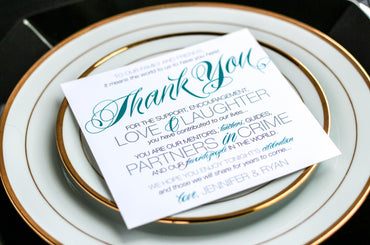 TO OUR FAMILY AND FRIENDS,
it means the world to us to have you here!
Thank You
FOR THE SUPPORT, ENCOURAGEMENT,
LOVE & LAUGHTER
you have contributed to our lives...
YOU ARE OUR MENTORS, teachers, GUIDES,
PARTNERS IN CRIME
AND OUR favorite people IN THE WORLD.
WE HOPE YOU ENJOY TONIGHT'S celebration
and those we will share for years to come...
love, JENNIFER & RYAN